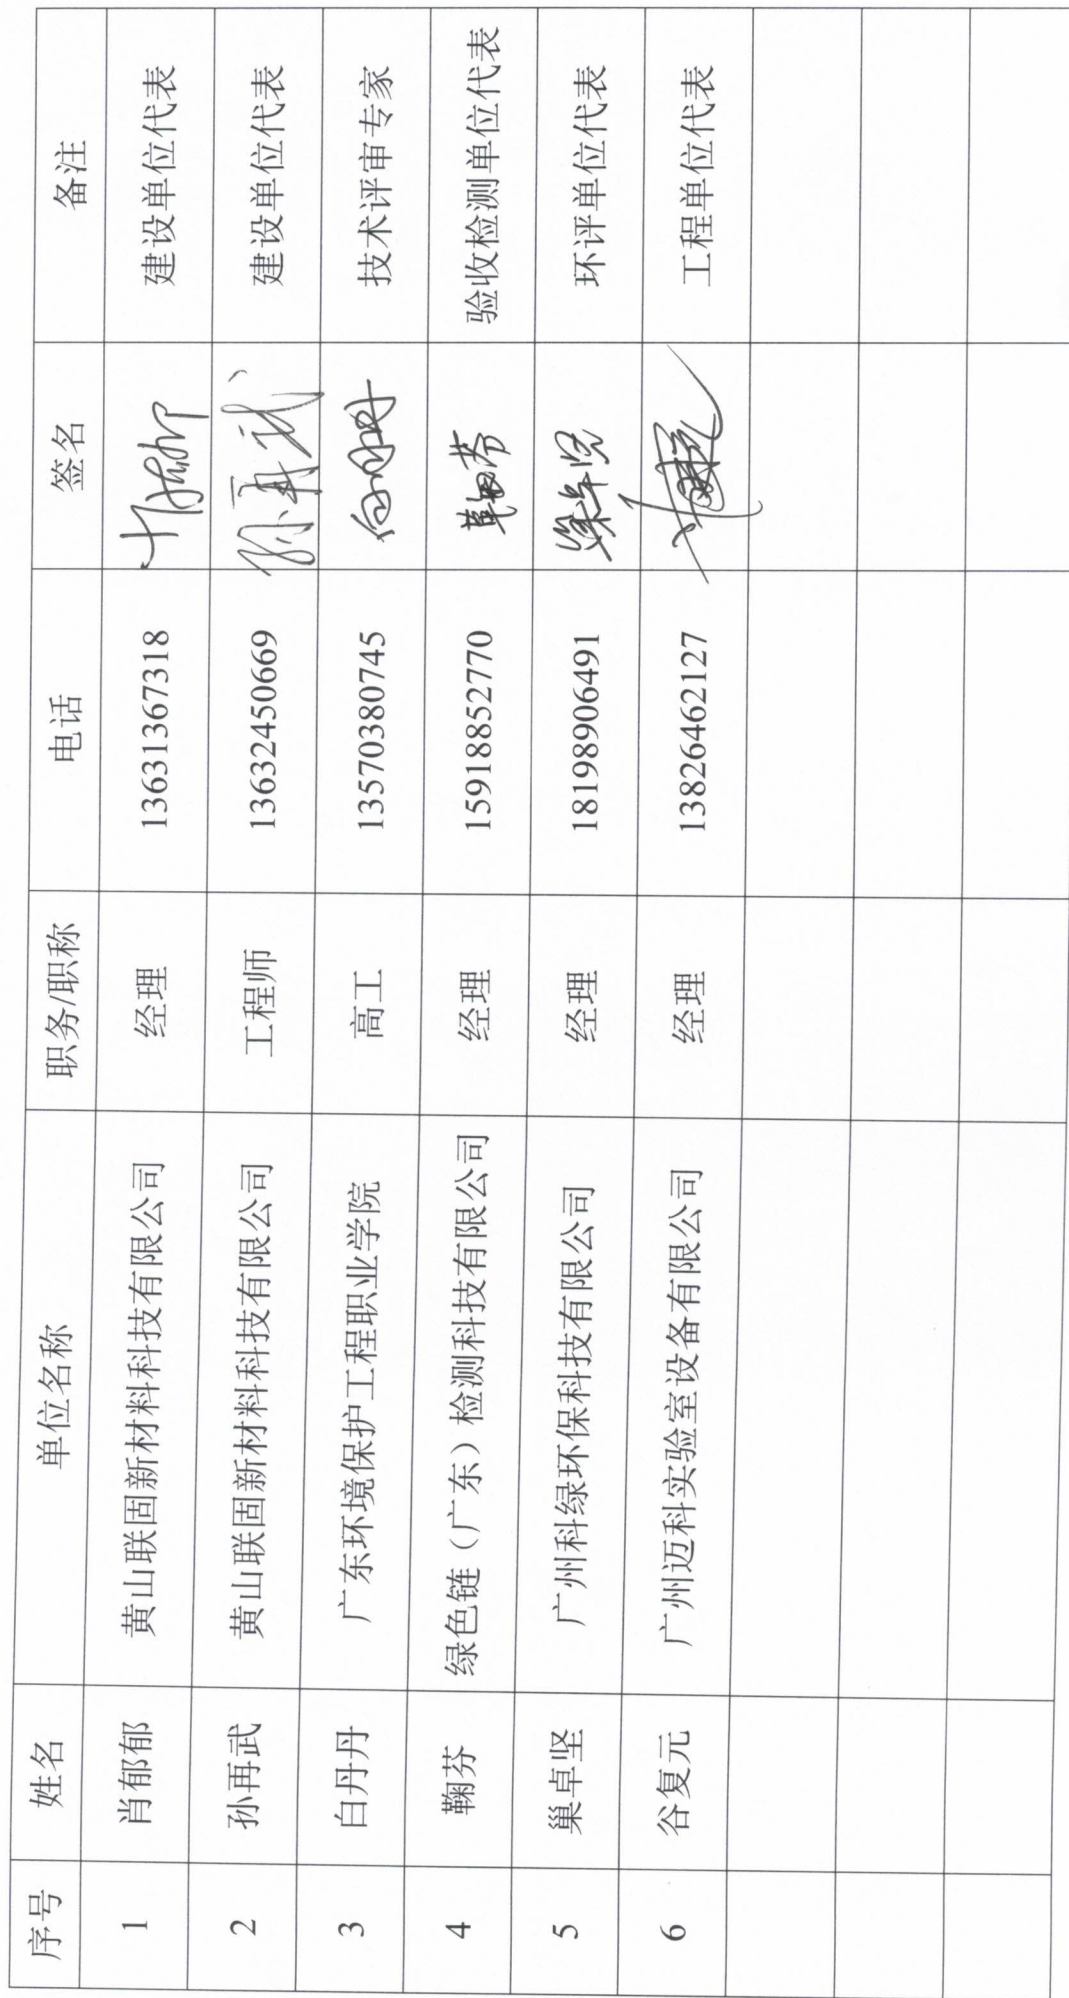 序号 姓名 单位名称 职务/职称 电话 签名 备注
1 肖郁郁 黄山联固新材料科技有限公司 经理 13631367318 建设单位代表
2 孙再武 黄山联固新材料科技有限公司 工程师 13632450669 孙再武 建设单位代表
3 白丹丹 广东环境保护工程职业学院 高工 13570380745 白丹丹 技术评审专家
4 鞠芬 绿色链（广东）检测科技有限公司 经理 15918852770 验收检测单位代表
5 巢卓坚 广州科绿环保科技有限公司 经理 18198906491 环评单位代表
6 谷复元 广州迈科实验室设备有限公司 经理 13826462127 工程单位代表